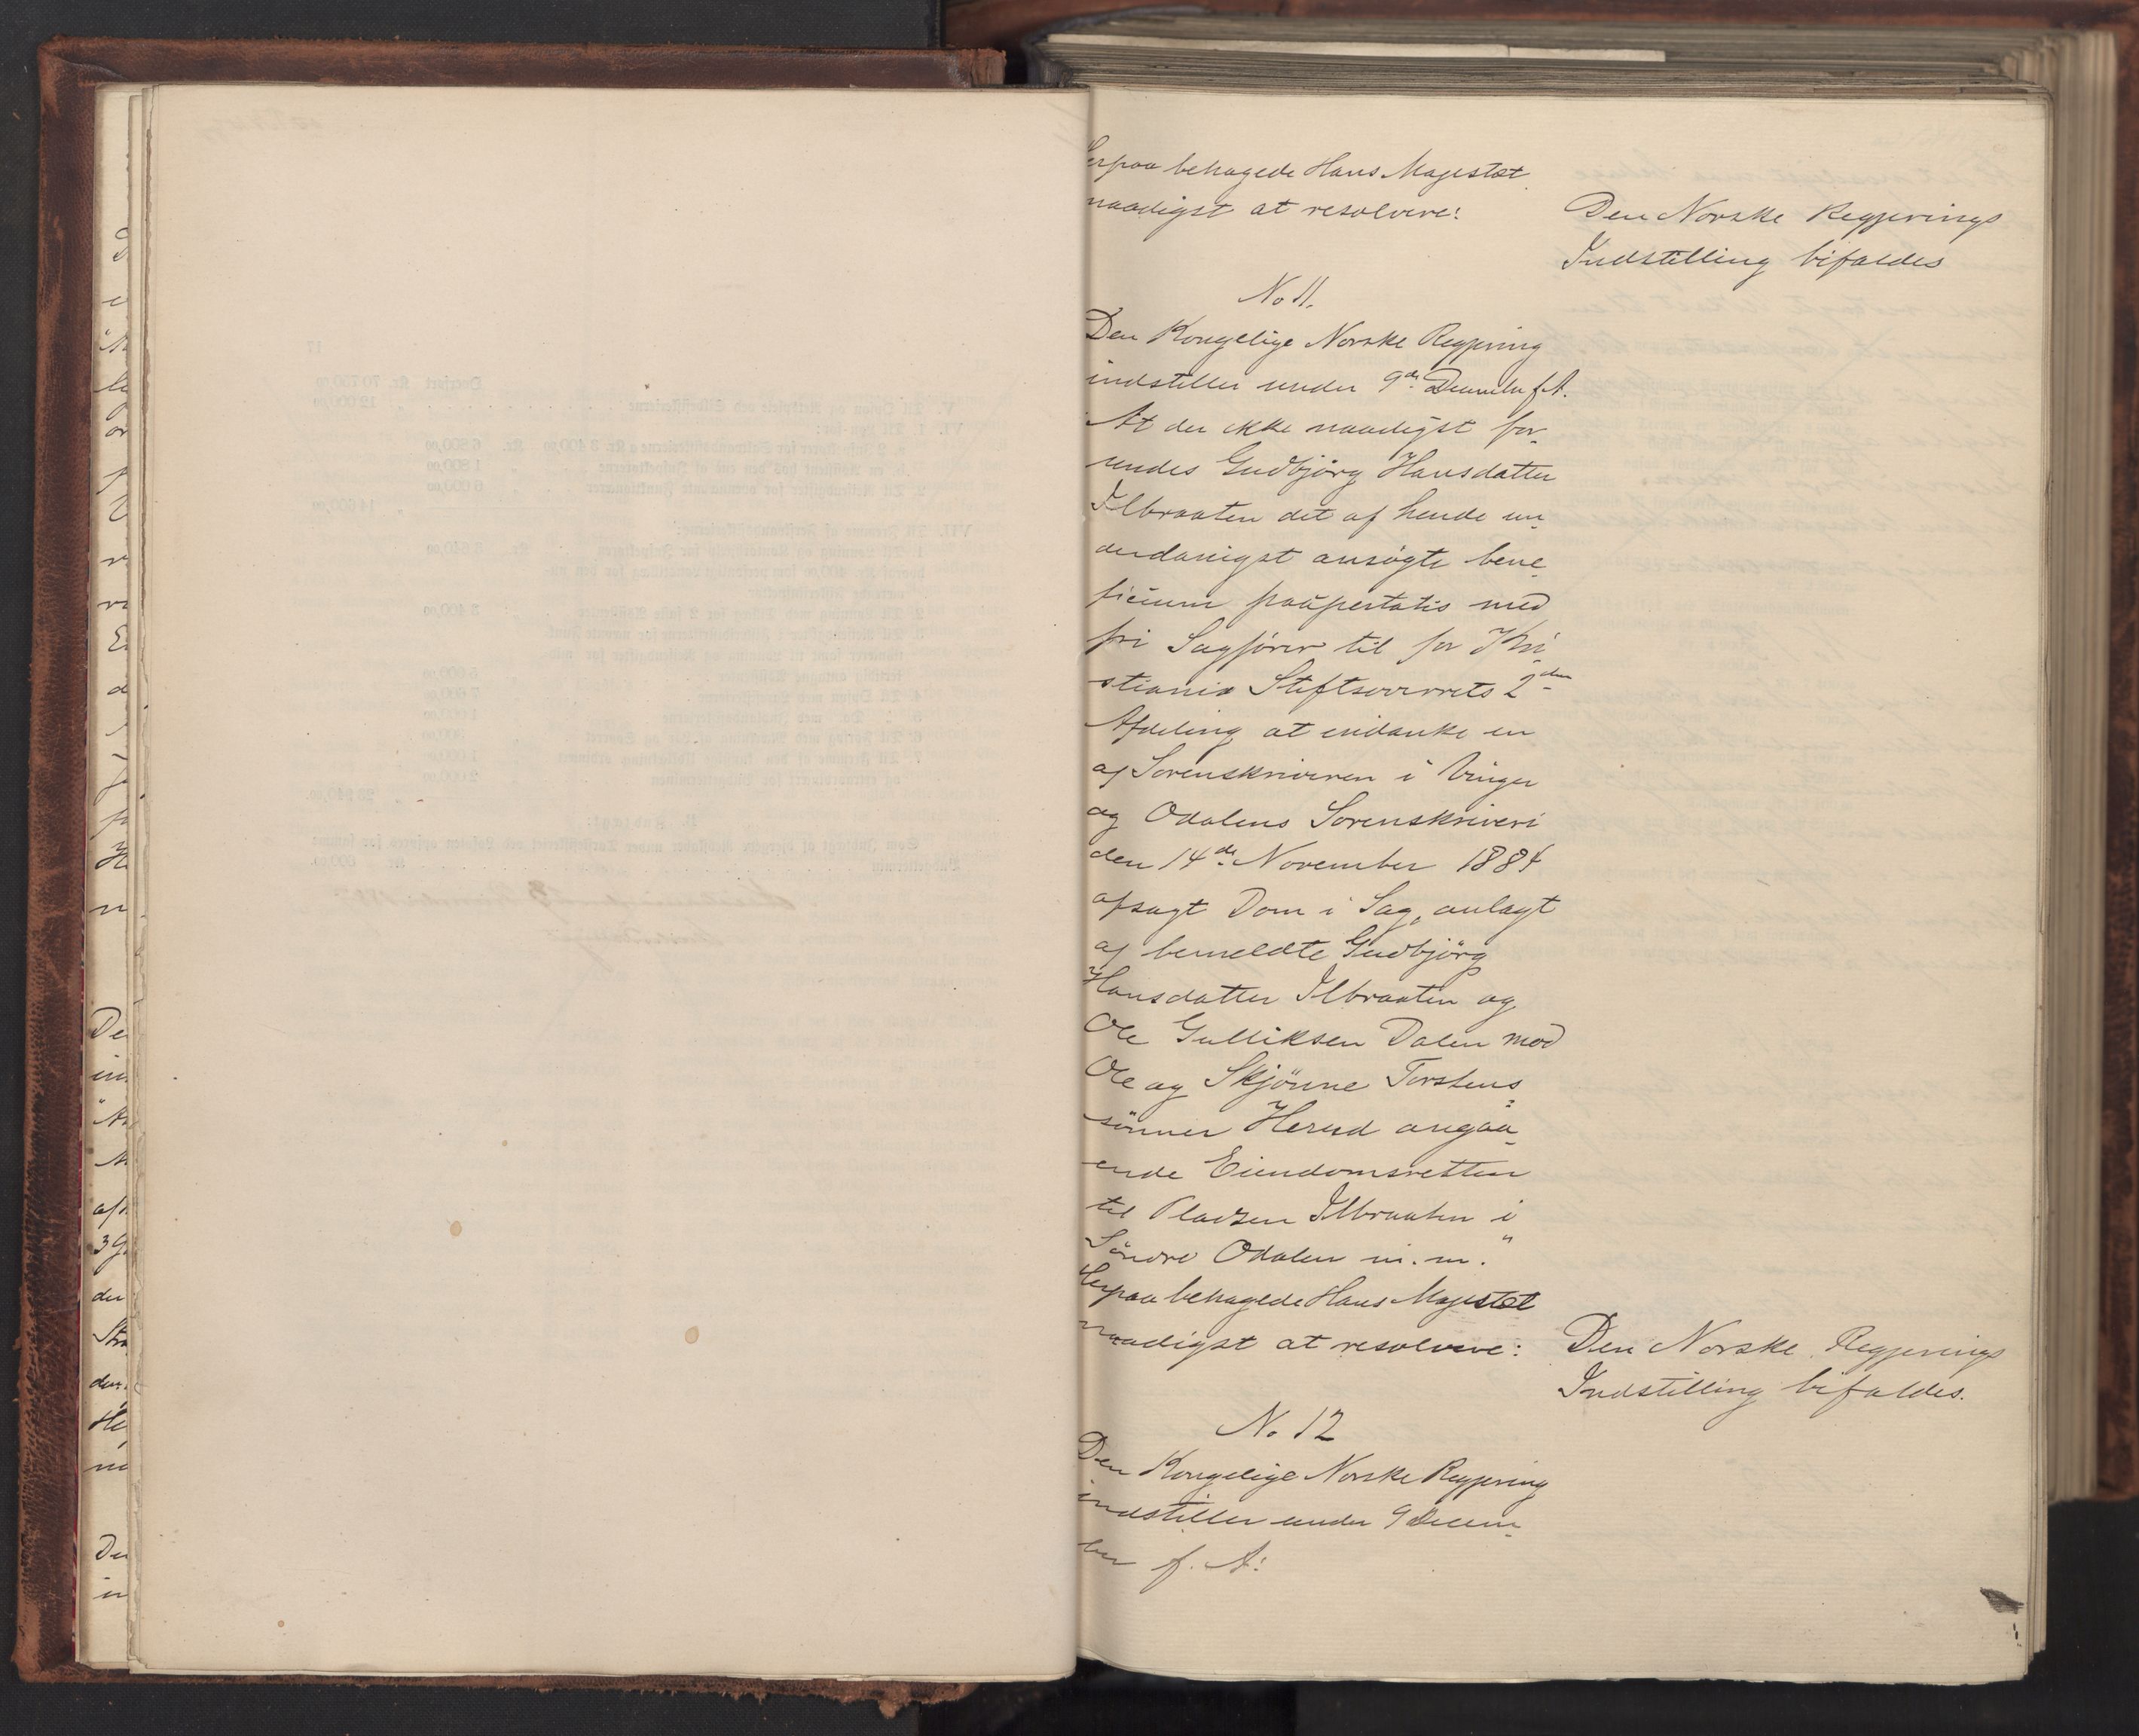 Herpaa behagede Hans Majestæt
naadigst at resolvere:
Den Norske Regjerings
Indstilling bifaldes
No 11.
Den Kongelige Norske Regjering
indstiller under 9de December f. A.
At der ikke naadigst for-
undes Gudbjörg Hansdatter
Ilbraaten det af hende un-
derdanigst ansögte bene-
ficium paupertatis med
fri Sagförer til for Kri-
stiania Stiftsoverrets 2den
Afdeling at indanke en
af Sorenskriveren i Vinger
og Odalens Sorenskriveri
den 14de November 1884
afsagt Dom i Sag, anlagt
af bemeldte Gudbjörg
Hansdatter Ilbraaten og
Ole Gulliksen Dalen mod
Ole og Skjönne Torstens-
sönner Herud angaa-
ende Eiendomsretten
til Pladsen Ilbraaten i
Söndre Odalen m. m."
Herpaa behagede Hans Majestæt
naadigst at resolvere:
Den Norske Regjerings
Indstilling bifaldes.
No 12
Den Kongelige Norske Regjering
indstiller under 9 Decem-
ber f. A: